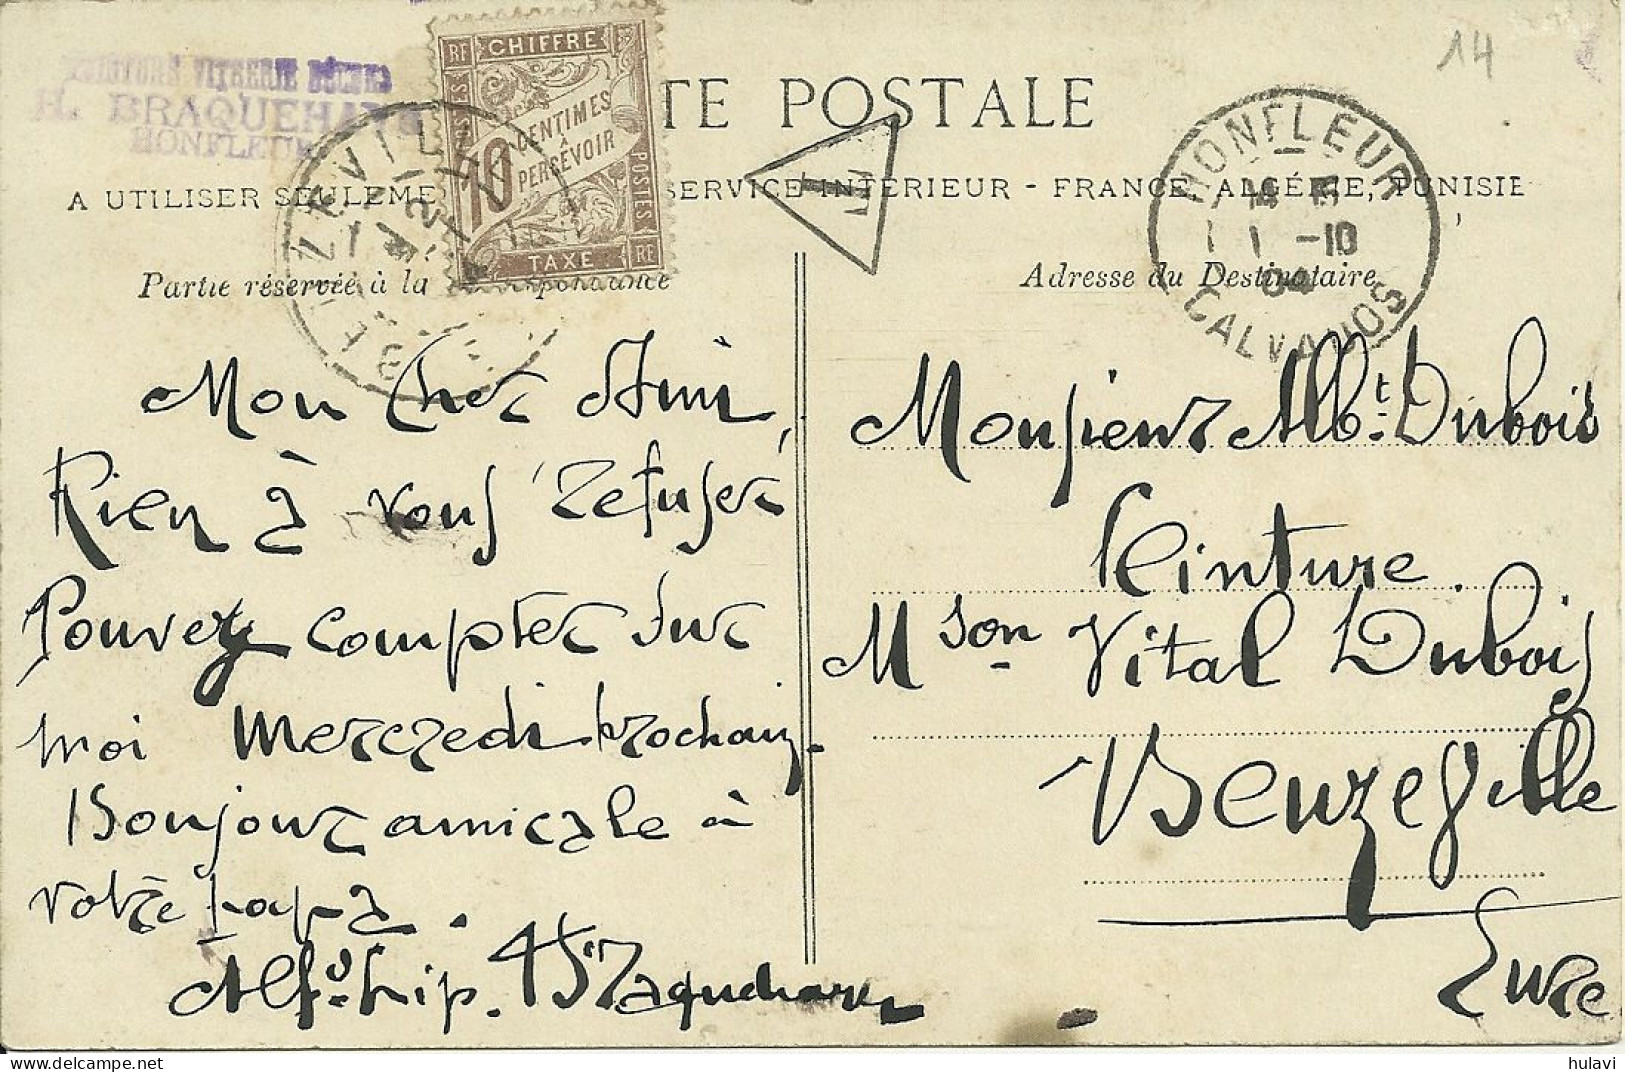 14
PEINTURE VITRERIE DÉCORS
H. BRAQUEHAYE
HONFLEUR
CHIFFRE
RF
10
CENTIMES
À
PERCEVOIR
POSTES
TAXE
RF
TE POSTALE
A UTILISER SEULEME SERVICE INTÉRIEUR - FRANCE, ALGÉRIE, TUNISIE
T
HONFLEUR
1 -10
04
CALVADOS
BEUZEVILLE
Partie réservée à la correspondance
Adresse du Destinataire
Mon Cher Ami,
Rien à vous refuser
Pouvez compter sur
moi Mercredi prochain.
Bonjour amicale à
votre papa.
Monsieur Albt. Dubois
Peinture.
Mson Vital Dubois
Beuzeville
Eure
hulavi